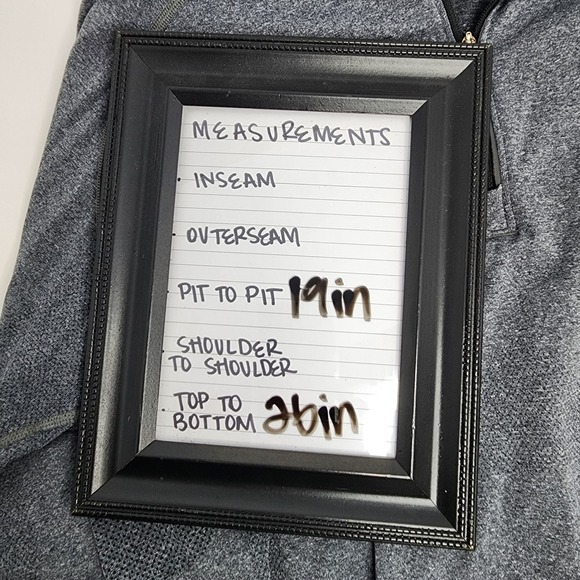 MEASUREMENTS
· INSEAM
· OUTERSEAM
· PIT TO PIT 19in
· SHOULDER
TO SHOULDER
· TOP TO
BOTTOM 26in